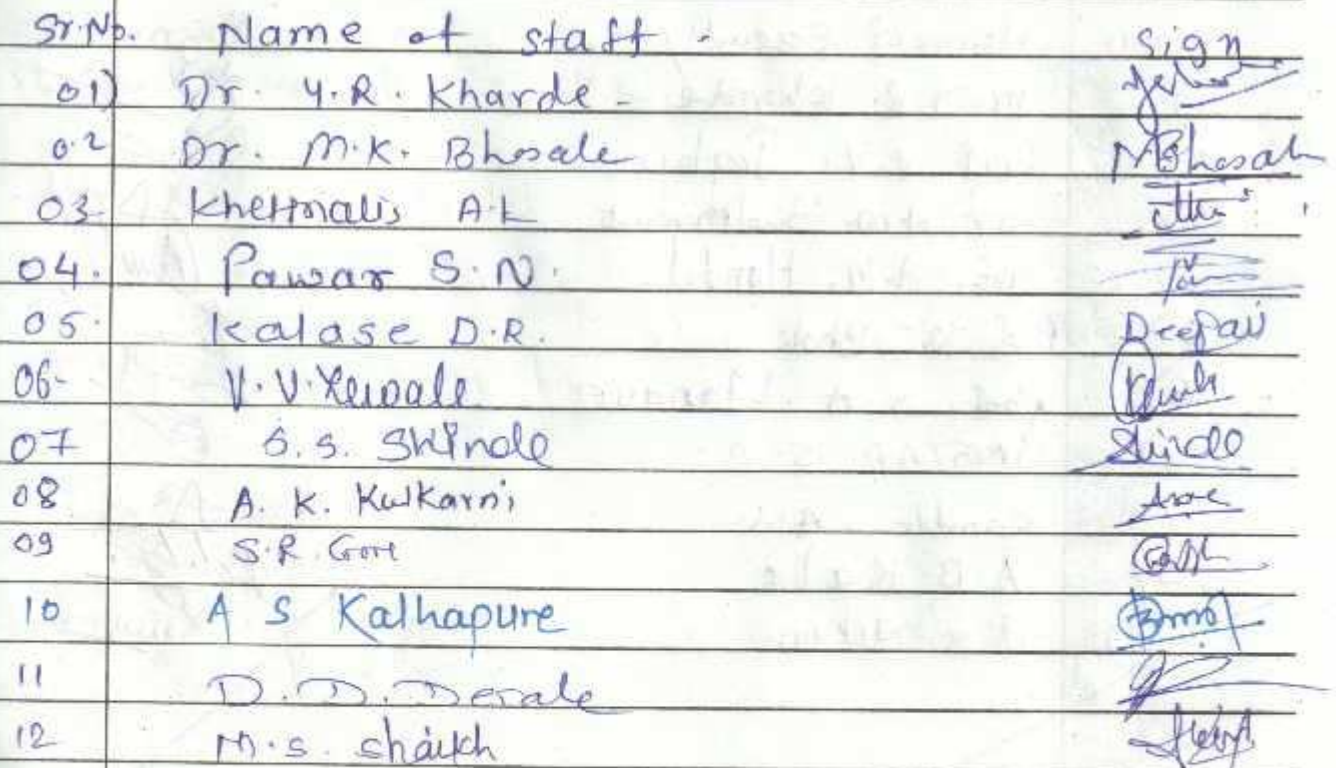 Sr.No. Name of staff - Sign
01) Dr. Y.R. Kharde -
02 Dr. M.K. Bhosale MBhosale
03. Khetmalis A.L
04. Pawar S.N.
05. Kalase D.R. Deepali
06- V.V. Yewale
07 S.S. Shinde Shinde
08 A. K. Kulkarni
09 S.R. Gore
10 A S Kalhapure
11 D.D. Derale
12 M.S. shaikh